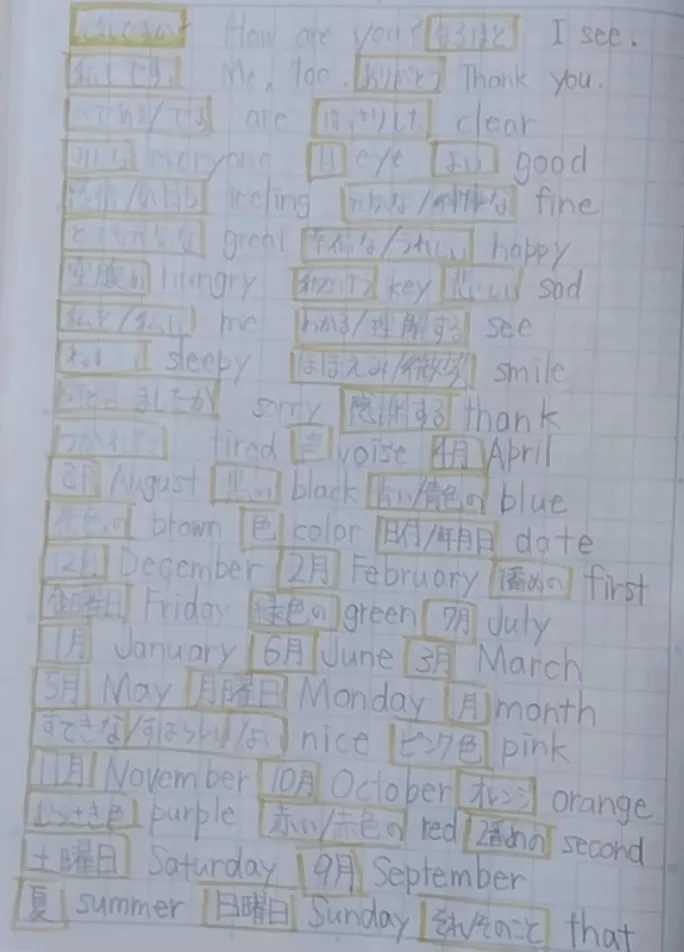 How are you? なるほど I see.
私もです Me, too. ありがとう Thank you.
～である/です are はっきりした clear
みんな everyone 目 eye よい good
感情/気持ち feeling 元気な/健康な fine
とても元気な great 幸福な/うれしい happy
空腹の hungry key 悲しい sad
私を/私に me わかる/理解する see
ねむい sleepy ほほえみ/微笑 smile
sorry 感謝する thank
つかれた tired 声 voise 4月 April
8月 August 黒い black 青い/青色の blue
茶色の brown 色 color 日付/年月日 date
12月 December 2月 February 1番めの first
金曜日 Friday 緑色の green 7月 July
1月 January 6月 June 3月 March
5月 May 月曜日 Monday 月 month
すてきな/すばらしい/よい nice ピンク色 pink
11月 November 10月 October オレンジ orange
むらさき色 purple 赤い/赤色の red 2番めの second
土曜日 Saturday 9月 September
夏 summer 日曜日 Sunday それ/そのこと that